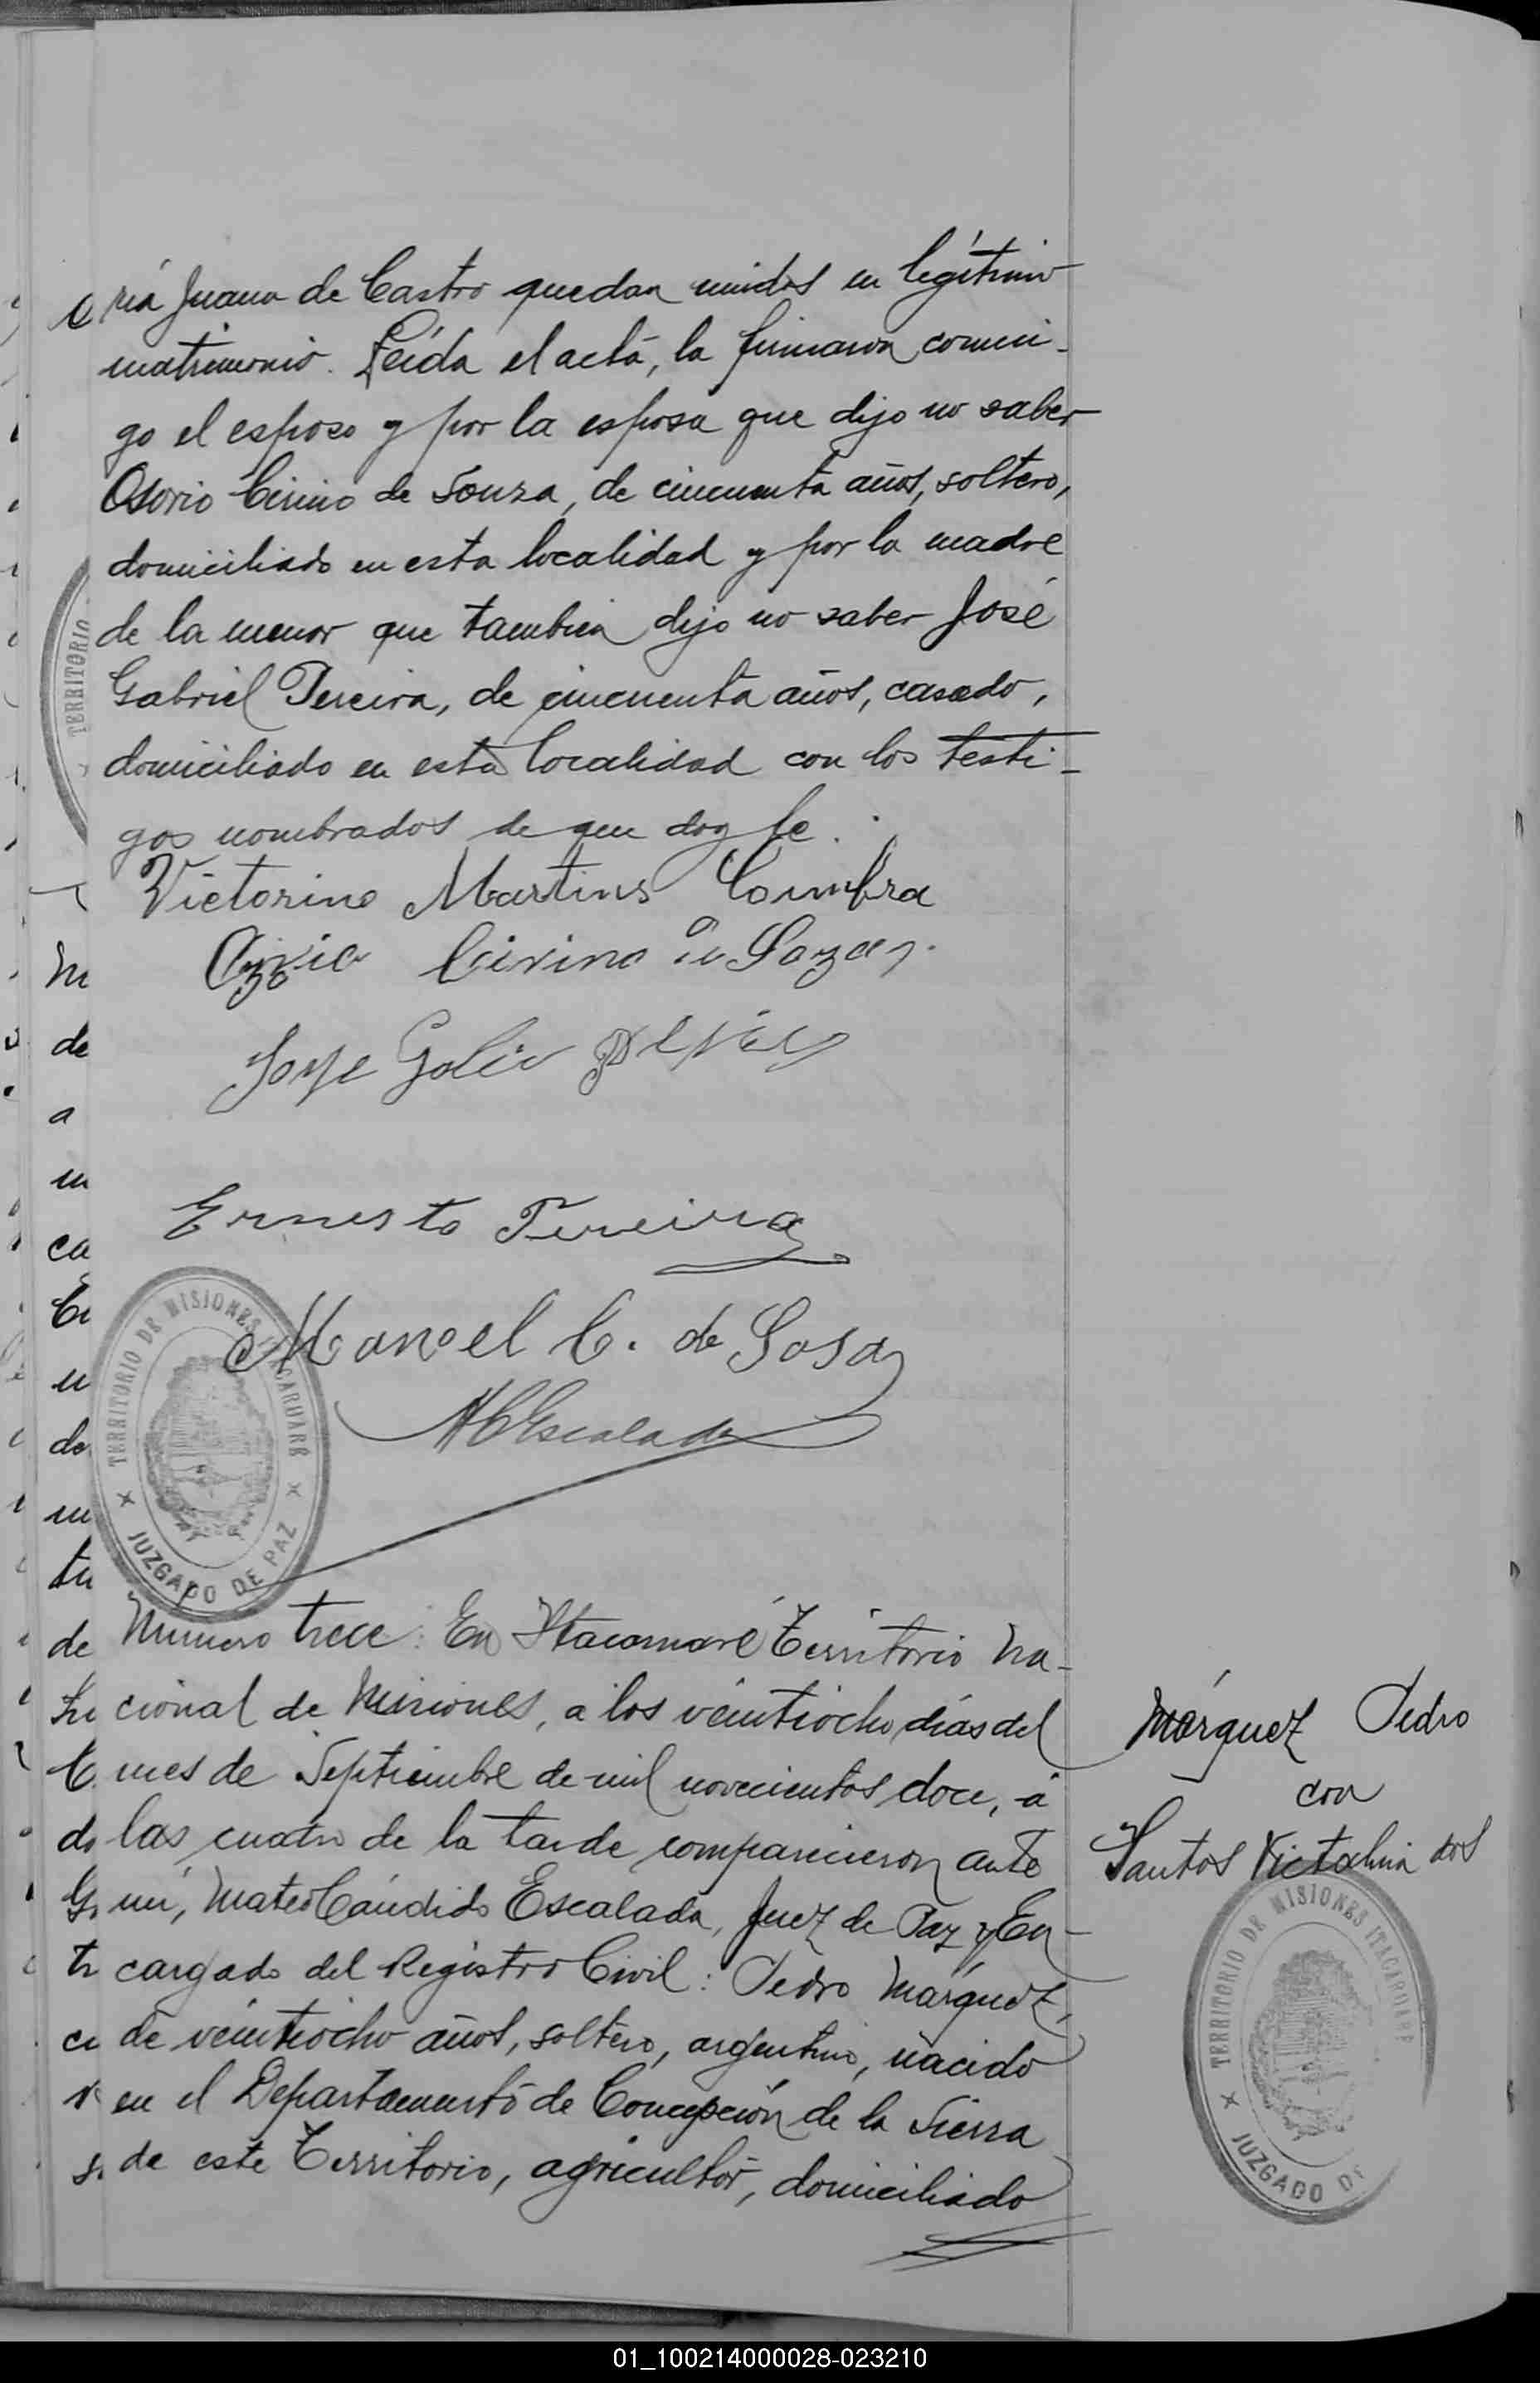 ria Juana de Castro quedan unidos en legítimo
matrimonio. Leída el acta, la firmaron conmi-
go el esposo y por la esposa que dijo no saber
Osorio Cirino de Souza, de cincuenta años, soltero,
domiciliado en esta localidad y por la madre
de la menor que tambien dijo no saber José
Gabriel Pereira, de cincuenta años, casado,
domiciliado en esta localidad con los testi-
gos nombrados de que doy fe.
Victorino Martins Coimbra
Cirino de Sozan
Jose
Ernesto Pereira
Manoel C. de Sosa
MCEscalada
TERRITORIO DE MISIONES ITACARUARE
JUZGADO DE PAZ
Numero trece: En Itacaruaré Territorio Na-
cional de Misiones, a los veintiocho días del
mes de Septiembre de mil novecientos doce, á
las cuatro de la tarde comparecieron ante
mi, Mateo Cándido Escalada, Juez de Paz y En-
cargado del Registro Civil: Pedro Márquez,
de veintiocho años, soltero, argentino, nacido
en el Departamento de Concepción de la Sierra
de este Territorio, agricultor, domiciliado
Márquez Pedro
con
Santos Victalina dos
TERRITORIO DE MISIONES ITACARUARE
JUZGADO DE
TERRITORIO
01_100214000028-023210